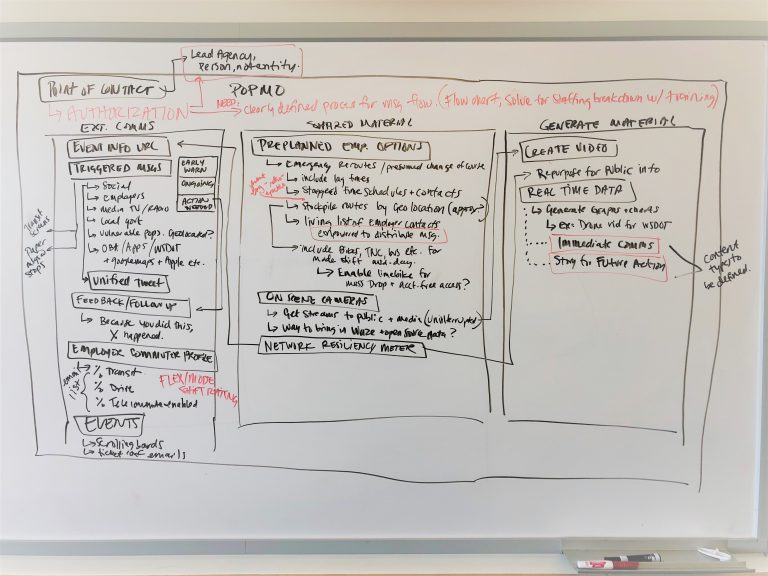 Lead Agency,
person, not entity.
POINT OF CONTACT
POPMO
AUTHORIZATION
NEED:
clearly defined process for msg flow. (Flow chart, Solve for Staffing breakdown w/ training)
EXT. COMMS
EVENT INFO URL
TRIGGERED MSGS
EARLY
WARN
ONGOING
ACTION
NEEDED
Social
employers
media TV/RADIO
Local govt
vulnerable pops. Geolocated?
OBA/Apps/WSDOT
+ googlemaps + Apple etc.
Transit
Paper
stops
Unified Tweet
FEEDBACK/FOLLOW UP
Because you did this,
X happened.
EMPLOYER COMMUTER PROFILE
email
list
% Transit
% Drive
% Telecommute enabled
FLEX/MODE
SHIFT RATING
EVENTS
Scrolling boards
ticket conf emails
SHARED MATERIAL
PREPLANNED EMP. OPTIONS
Emergency Reroutes / presumed change of route
include lag times
Staggered time schedules + contacts
stockpile routes by Geolocation (approx.)
living list of employer contacts
empowered to distribute msg.
include Bikes, TNC, bus etc. For
mode shift mid-day.
Enable limebike for
mass Drop + acct-free access?
ON SCENE CAMERAS
Get Streams to public + media (uninterrupted)
Way to bring in Waze + open source data?
NETWORK RESILIENCY METER
GENERATE MATERIAL
CREATE VIDEO
Repurpose for Public info
REAL TIME DATA
Generate Graphs + charts
Ex: Drone vid for WSDOT
Immediate comms
Story for Future Action
Content
types to
be defined.